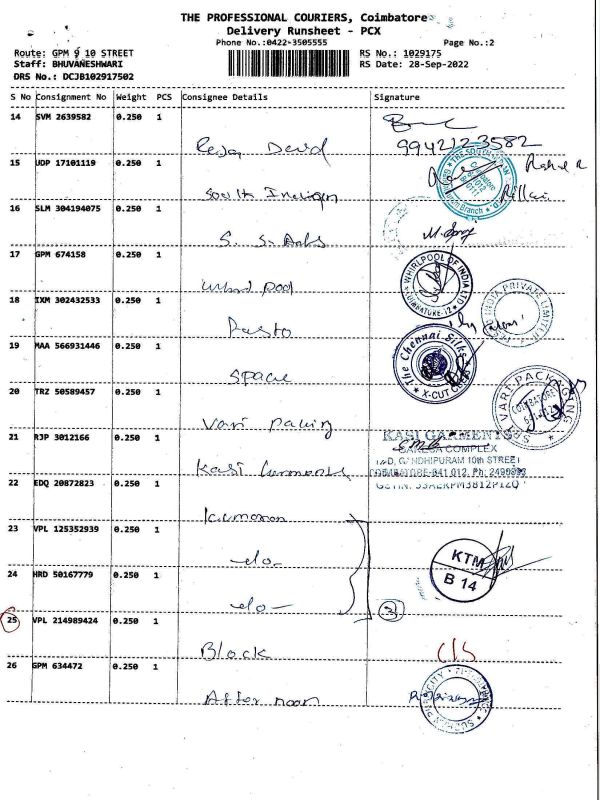 THE PROFESSIONAL COURIERS, Coimbatore
Delivery Runsheet - PCX
Phone No.:0422-3505555
Page No.:2
Route: GPM 9 10 STREET
RS No.: 1029175
Staff: BHUVANESHWARI
RS Date: 28-Sep-2022
DRS No.: DCJB102917502
S No Consignment No Weight PCS Consignee Details Signature
14 SVM 2639582 0.250 1
David 9942123582
15 UDP 17101119 0.250 1
South
16 SLM 304194075 0.250 1
S. S.
17 GPM 674158 0.250 1
pool
WHIRLPOOL OF INDIA LTD
COIMBATORE-12
18 IXM 302432533 0.250 1
INDIA PRIVATE LIMITED
19 MAA 566931446 0.250 1
space
The Chennai Silks
X-CUT
20 TRZ 50589457 0.250 1
Vari
SRI VARI PACKAGING
COIMBATORE
21 RJP 3012166 0.250 1
Kasi Garments
KASI GARMENTS
COMPLEX
GANDHIPURAM 10th STREET
COIMBATORE-641 012. Ph: 2499393
22 EDQ 20872823 0.250 1
23 VPL 125352939 0.250 1
-do-
24 HRD 50167779 0.250 1
-do-
KTM
B 14
3
25 VPL 214989424 0.250 1
Block
26 GPM 634472 0.250 1
After noon